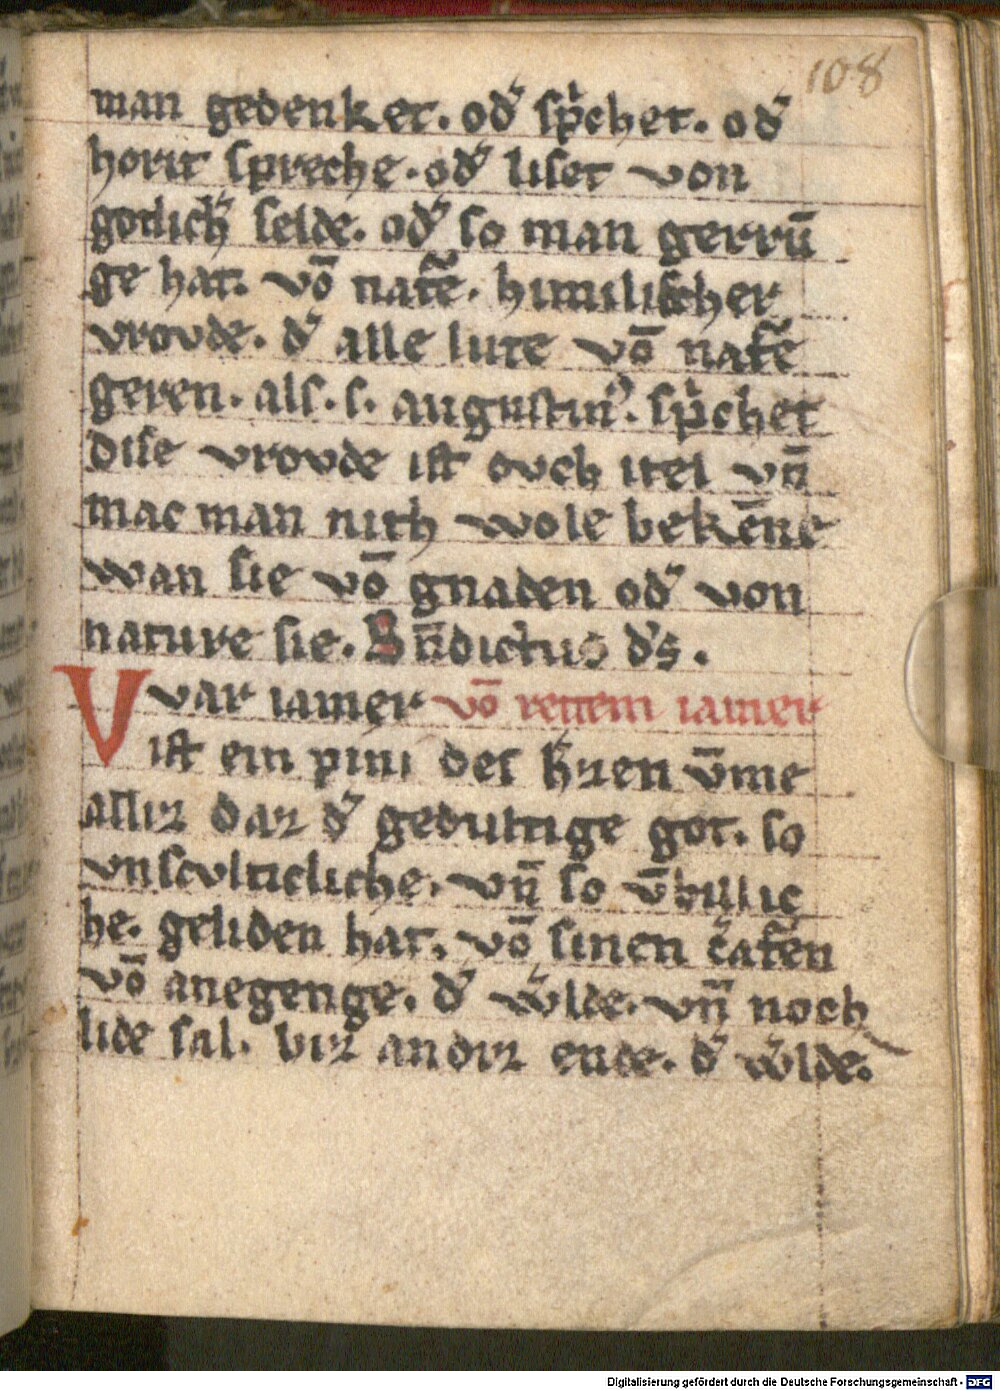 108
man gedenket. od̛ sp̛chet. od̛
horit spreche. od̛ liset von
gotlich̛ selde. od̛ so man gerrū
ge hat. vō nat̛e. himilischer
vrovde. d̛ alle lute vō nat̛e
geren. als. s. augustin᾽. sp̛chet
dise vrovde ist ovch itel vn̄
mac man nith wole bekēne
wan sie vō gnaden od̛ von
nature sie. Bn̄dictus d̛s.
Vvar iamer vō rettem iamer
ist ein pini des h̛zen v̄me
alliz daz d̛ gedultige got. so
vnscvlticliche. vn̄ so v̄billic
he. geliden hat. vō sinen c̛at̛en
vō anegenge. d̛ w̛lde. vn̄ noch
lide sal. biz an diz ende. d̛ w̛lde.
Digitalisierung gefördert durch die Deutsche Forschungsgemeinschaft - DFG